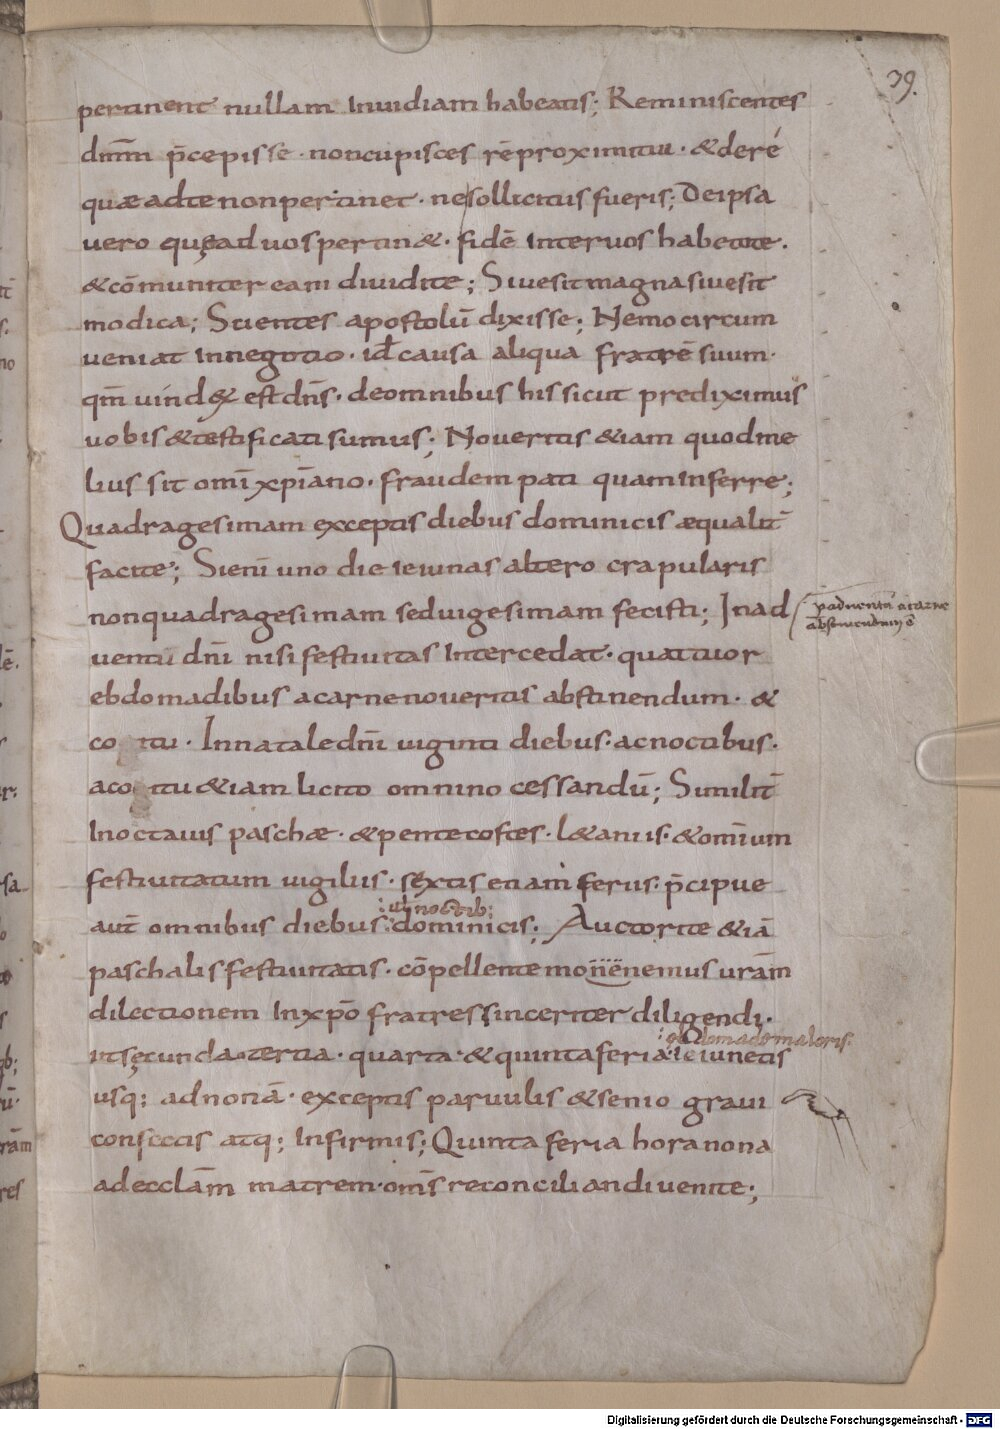 39.
pertinent nullam inuidiam habeatis; Reminiscentes
dn̄m p̄cepisse · non cupisces rē proximi tui · & de ré
quæ ad te non pertinet · ne sollicitus fueris; De ipsa
uero quę ad uos pertin& · fidē inter uos habetote.
& cōmuniter eam diuidite; Siue sit magna siue sit
modica; Scientes apostolū dixisse; Nemo circum
ueniat in negotio · id ē causa aliqua fratrē suum ·
qm̄ uindex est dn̄s · de omnibus his sicut prediximus
uobis & testificati sumus; Noueritis &iam quod me
lius sit omī xp̄iano · fraudem pati quam inferre;
Quadragesimam exceptis diebus dominicis æqualit̄
facite; Si enī uno die ieiunas altero crapularis
non quadragesimam sed uigesimam fecisti; In ad
p aduentū a carne
abstinendum ē
uentu dn̄i nisi festiuitas intercedat · quattuor
ebdomadibus a carne noueritis abstinendum · &
co tu · In natale dn̄i uiginti diebus · ac noctibus ·
a co tu &iam licito omnino cessandū; Similit̄
in octauis paschæ · & pentecostes · l&aniis · & omīum
festiuitatum uigiliis · sextis etiam feriis · p̄cipue
ut noctib;
aut̄ omnibus diebus dominicis; Auctorite &iā
paschalis festiuitatis · cōpellente monemus urām
dilectionem in xp̄o fratres sinceriter diligendi ·
ebdomade maioris
ut secunda · tertia · quarta · & quinta feria ieiunetis
usq; ad nonā · exceptis paruulis & senio graui
confectis atq; infirmis; Quinta feria hora nona
ad ecclām matrem · om̄s reconciliandi uenite;
Digitalisierung gefördert durch die Deutsche Forschungsgemeinschaft · DFG